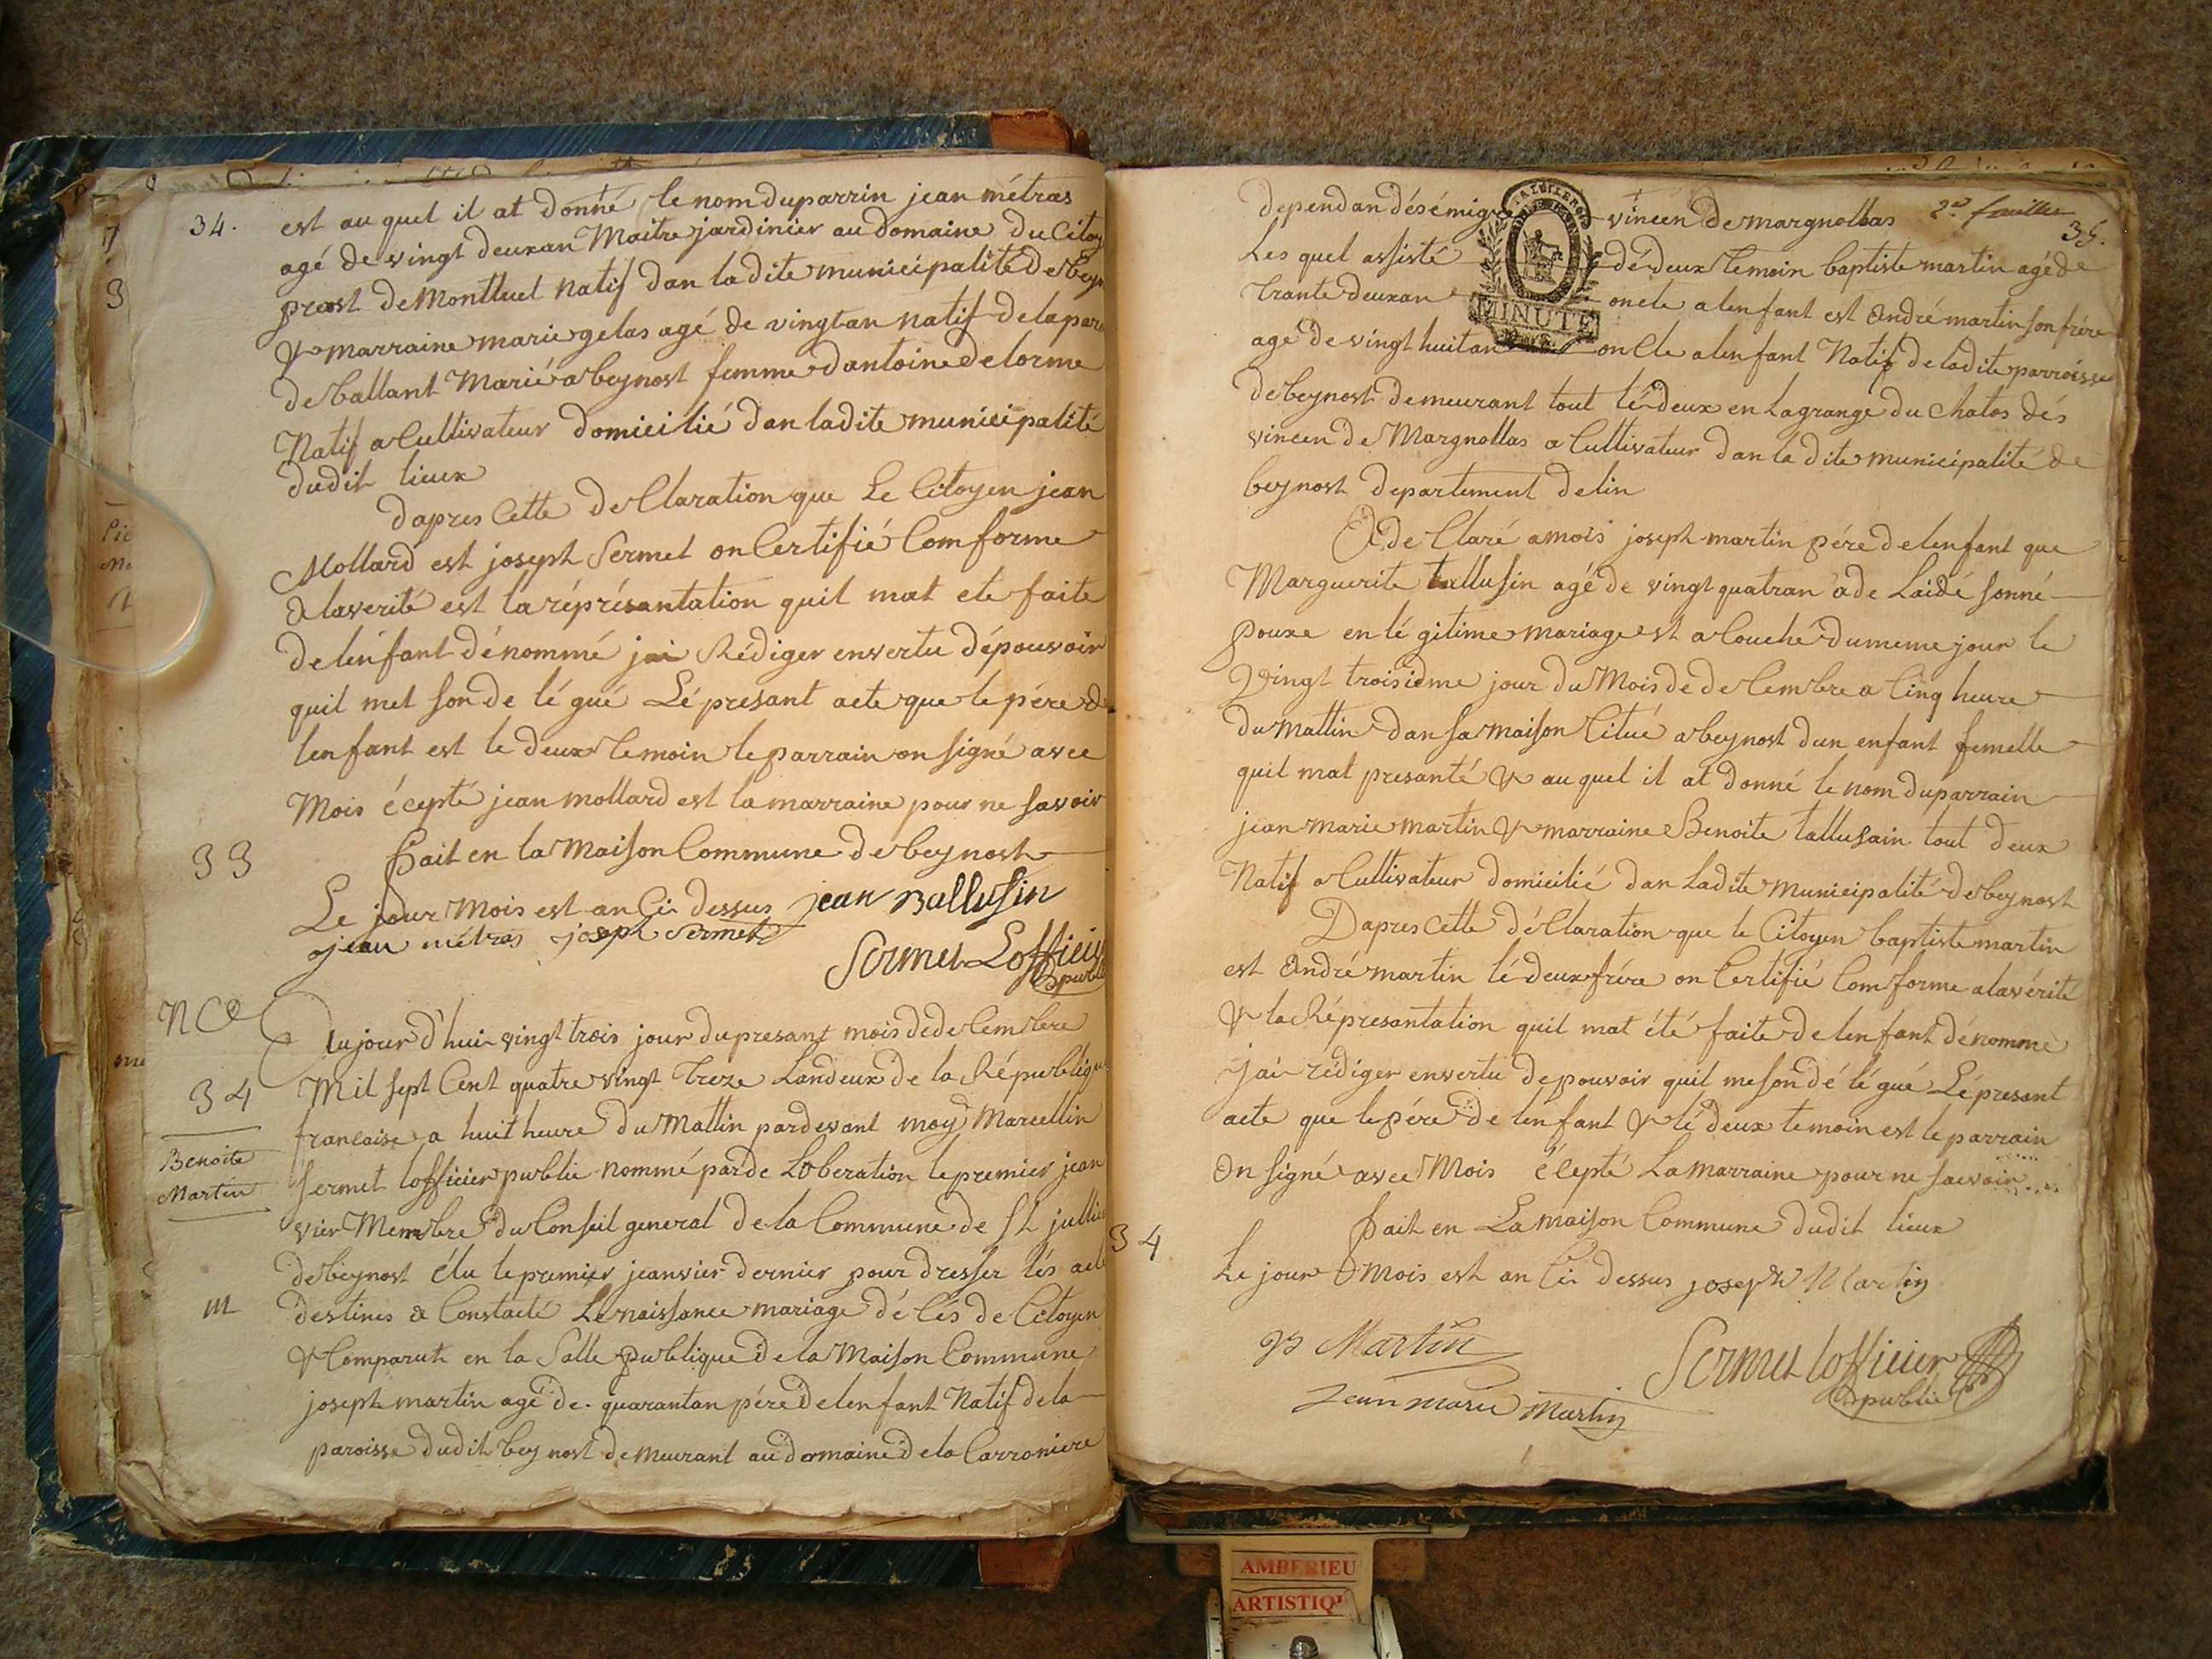 34.
est au quel il at donné le nom du parrin jean métras
agé de vingt deux an Maitre jardinier au domaine du Citoy
prost de Montluel natif dan la dite municipalité de beyn
& marraine marie gelas agé de vingt an natif de la paro
de ballant Marié a beynost femme dantoine delorme
Natif a Cultivateur domicilié dan la dite municipalité
dudit lieux
dapres Cette de Claration que Le Citoyen jean
Mollard est joseph Sermet on Certifié Comforme
a la verité est la réprésantation quil mat ete faite
de lenfant dénommé jai Rédiger en vertu dé pouvoir
quil met son de lé gué Lé present acte que le pére de
lenfant est le deux temoin le parrain on signé avec
Mois écepté jean mollard est la marraine pour ne savoir
33
Fait en la Maison Commune de beynost
Le jour Mois est an Ci dessus jean Ballusin
jean métras joseph Sermet
Sermet Lofficier
public
N Ce
Aujour d'hui vingt trois jour du presant mois de de Cembre
34
Mil sept Cent quatre vingt treze Lan deux de la Républiqu
francaise a huit heure du Mattin pardevant moy Marcellin
Benoite
Martin
Sermet lofficier public nommé par de Loberation le premier jean
vier Membre du Conseil general de la Commune de St jullien
de beynost élu le premier jeanvier dernier pour dresser lés acte
m
destines a Constacté Le naissance mariage dé Cés de Citoyen
& Comparut en la Salle publique de la Maison Commune
joseph martin agé de quarantan pére de lenfant Natif de la
paroisse dudit beynost demeurant au domaine de la Carroniere
2e feuillet
35.
dependan dés émigré vincen de margnollas
Les quel assisté dé deux temoin baptiste martin agé de
trante deux an oncle a lenfant est André martin son frére
agé de vingt huit an oncle a lenfant Natif de la dite parroisse
de beynost demeurant tout lé deux en La grange du Chatos dés
vincen de Margnollas a Cultivateur dan la dite municipalité de
beynost departement de lin
MINUTE
A de Claré a mois joseph martin pére de lenfant que
Marguerite tallusin agé de vingt quatran a de Laidé son né
pouxe en lé gitime mariage est a Couché du meme jour le
Vingt troisiéme jour du Mois de de Cembre a Cinq heure
du Mattin dan sa maison Citué a beynost dun enfant femelle
quil mat presanté & au quel il at donné le nom du parrain
jean marie martin & marraine Benoite tallusain tout deux
Natif a Cultivateur domicilié dan la dite municipalité de beynost
Dapres Cette dé Claration que le Citoyen baptiste martin
est André martin lé deux frére on Certifié Comforme a la vérité
& la Répresantation quil mat été faite de lenfant dénomme
jai rédiger en vertu de pouvoir quil me son dé lé gué Lé present
acte que le pére de lenfant & lé deux temoin est le parrain
On signé avec Mois écepté La marraine pour ne savoir
34
Fait en La maison Commune dudit lieux
Le jour Mois est an Ci dessus joseph Martin
B Martin
Sermet lofficier
public
jean marie martin
AMBERIEU
ARTISTIQ